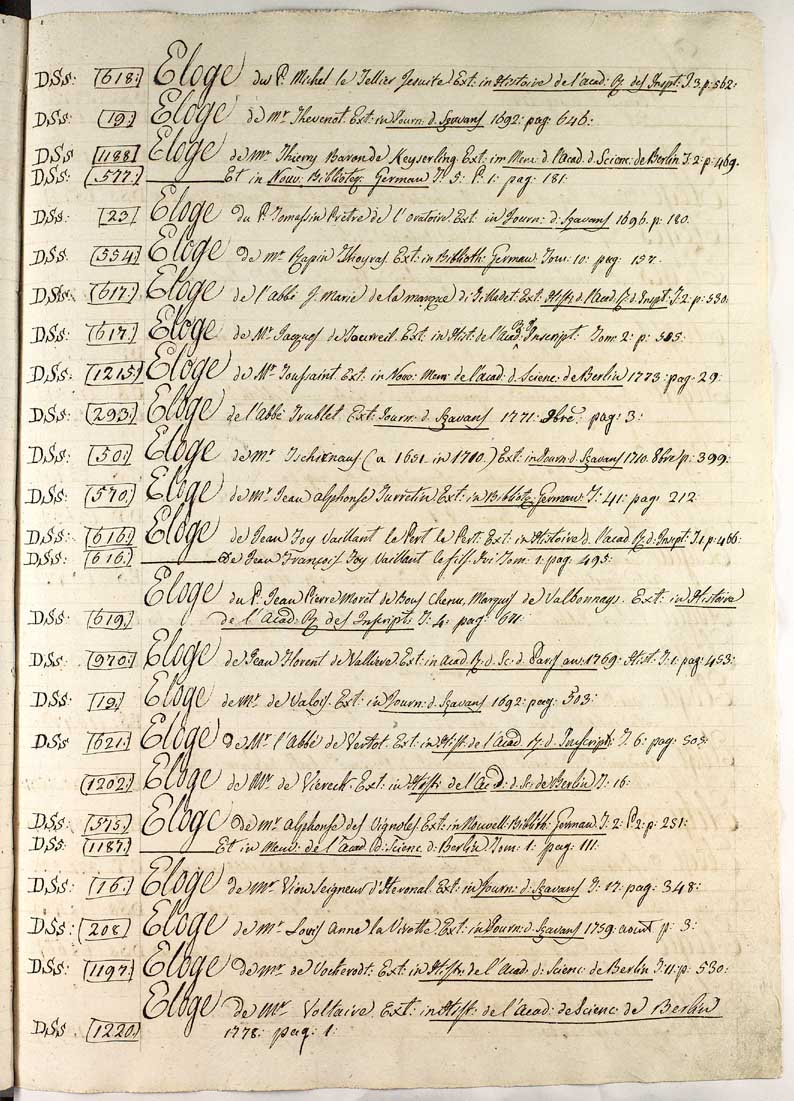 DSs: (618:) Eloge du P. Michel le Tellier Jesuite Ext: in Histoire de l'acad: R des Inspt: T. 3. p: 562:
DSs: (19.) Eloge de mr. Thevenot. Ext: in Journ: d. Sçavans 1692: pag: 646:
DSs (1188) Eloge de mr. Thierry Baron de Keyserling. Ext: in Mem: d. l'Acad. d. Scienc: de Berlin T: 2: p: 469.
DSs: (577.) Et in Nouv: Biblioteq: German T. 5: P. 1: pag: 181:
DSs: (23) Eloge du P. Tomassin Prêtre de l'oratoire Ext: in Journ: d: Sçavans 1696. p: 180.
DSs: (554.) Eloge De mr. Rapin Thoyras. Ext: in Biblioth: German. Tom: 10: pag: 157.
DSs: (617.) Eloge de l'abbé J. Marie de la marque di Tilladet. Ext: Hist: d. l'acad: R. d. Inspt: T: 2: p: 530:
DSs: (617.) Eloge de Mr. Jacques de Tourreil. Ext: in Hist: de l'acad R. d. Inscript: Tom: 2: p: 505:
DSs: (1215) Eloge de Mr. Toussaint. Ext: in Nouv: Mem: de l'acad: d. Scienc: de Berlin 1773: pag: 29:
DSs: (293.) Eloge de l'abbé Trublet Ext: Journ: d. Sçavans 1771: 9bre: pag: 3:
DSs: (50.) Eloge de mr. Tschirnaus (a 1651 in 1710.) Ext: in Journ: d. Sçavans 1710. 8bre p: 399:
DSs: (570.) Eloge de mr. Jean alphonse Turretin Ext: in Biblioteq: German: T: 41: pag: 212:
DSs: (616.) Eloge de Jean Foy Vaillant le Pert le Pert. Ext: in Histoire d. l'acad R. d. Inspt: T. 1. p: 486:
DSs: (616.) De Jean François Foy Vaillant le fils. Ivi Tom: 1: pag: 495:
Eloge du P. Jean Pierre Moret de Bous Chenu, Marquis de Valbonnays. Ext: in Histoire
DSs: (619.) de l'Acad: R. des Inscript: T: 4: pag: 671:
DSs: (970.) Eloge de Jean Florent de Valliere. Ext: in Acad. R. d. Sc: d. Paris an: 1769: Hist: T: 1: pag: 453:
DSs: (19.) Eloge de mr. de Valois. Ext: in Journ: d. Sçavans 1692: pag: 503:
DSs (621.) Eloge de Mr. l'Abbé de Vertot. Ext: in Hist: de l'Acad R. d. Inscript: T. 6: pag: 505:
(1202:) Eloge de Mr. de Viereck. Ext: in Hist: de l'Acad: d: Sc: de Berlin T: 16:
DSs: (575.) Eloge de mr. alphonse des Vignoles. Ext: in Nouvell: Biblioth: German: T: 2: P. 2: p: 251:
DSs: (1187.) Et in Mem: de l'acad: d: Scienc d: Berlin Tom: 1: pag: 111:
DSs: (16.) Eloge de Mr. Viou Seigneur d'Heronal. Ext: in Journ: d: Sçavans T: 17: pag: 348:
DSs: (208) Eloge de mr. Louis Anne la Virotte. Ext: in Journ: d: Sçavans 1759: aout p: 3:
DSs: (1197.) Eloge de mr. de Vockerodt: Ext: in Hist: de l'Acad: d: Scienc: de Berlin T: 11: p: 530:
Eloge De Mr. Voltaire. Ext: in Hist: de l'Acad: de Scienc: de Berlin
DSs (1220.) 1778: pag: 1: